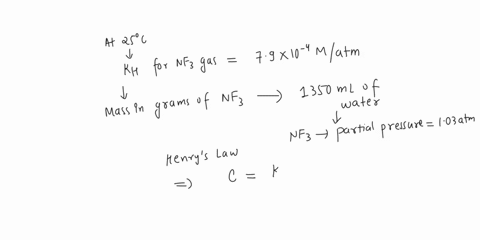 At 25°C
↓
KH for NF3 gas = 7.9 × 10⁻⁴ M/atm
↓
Mass in grams of NF3 → 1350 mL of
water
↓
NF3 → partial pressure = 1.03 atm
Henry's Law
⇒ C = K